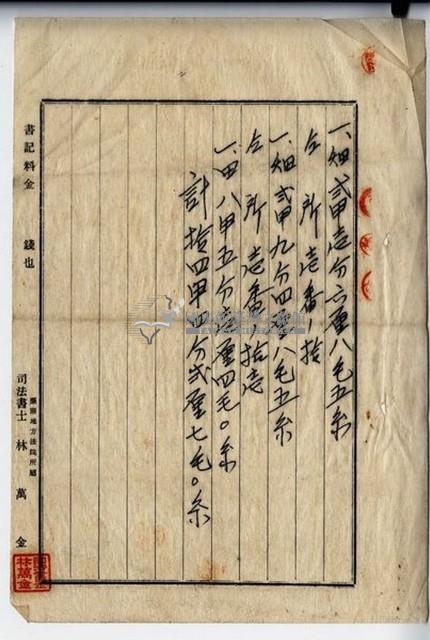 一、畑 貳甲壱分六厘八毛五糸
仝所 壱番ノ拾
一、畑 貳甲九分四厘八毛五糸
仝所壱番ノ拾壱
一、田 八甲五分壱厘四毛〇糸
計拾四甲四分弐厘七毛〇糸
書記料金 錢也
地方法院所屬
司法書士 林萬金
林萬金